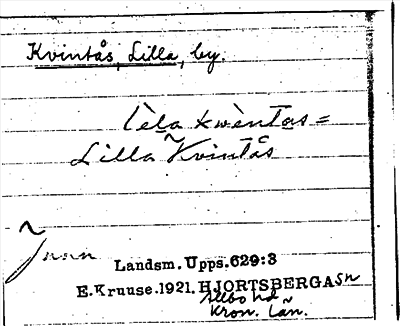 Kvintås, Lilla, by.
lèla kwèntas =
Lilla Kvintås
Landsm. Upps. 629:3
E. Kruuse. 1921. HJORTSBERGA sn
Allbo hd
Kron. län.